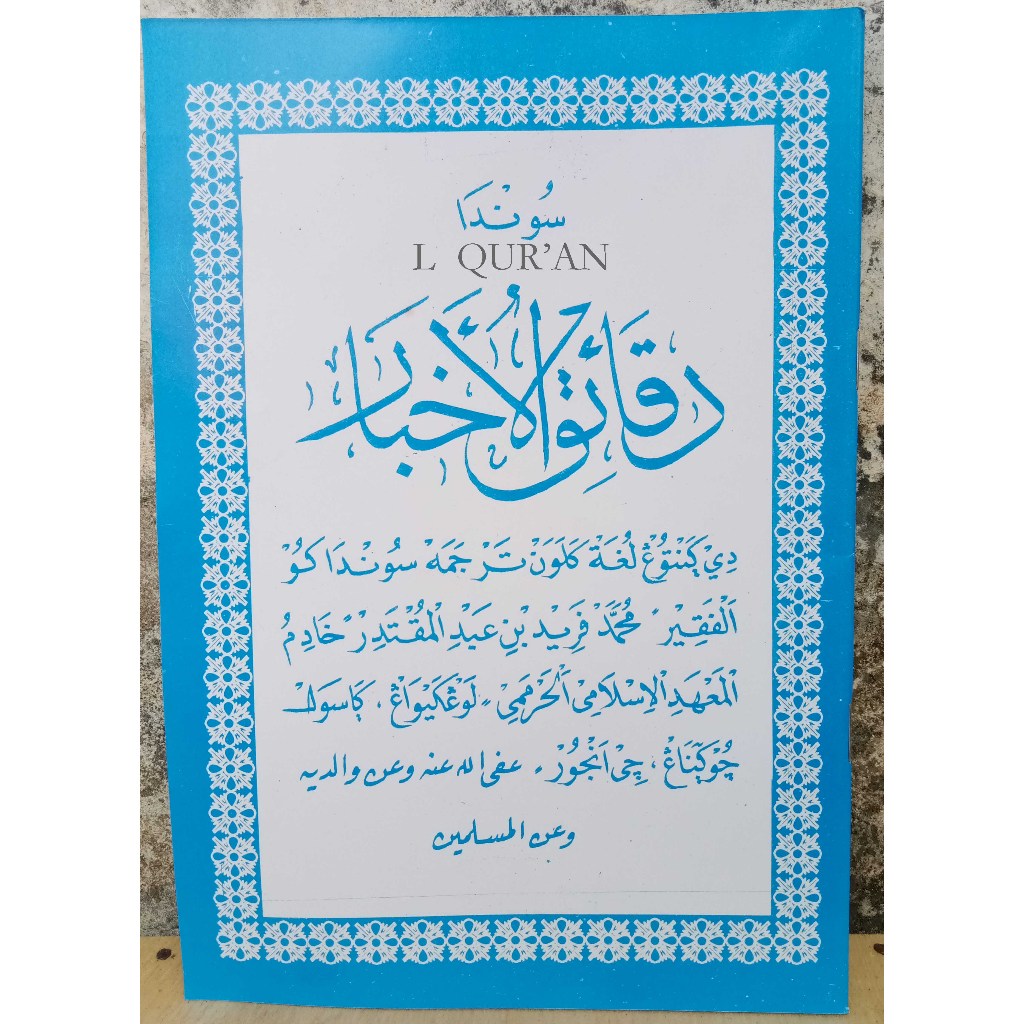 سُوْنْدَا
L QUR'AN
دَقَائِقُ الْأَخْبَار
دِيْ ݢَنْتُوْڠْ لُغَةْ كَلَوَنْ تَرْجَمَهْ سُوْنْدَا كَوْ
اَلْفَقِيْر مُحَمَّدْ فَرِيْد بِنْ عَبْدِ الْمُقْتَدِرْ خَادِمُ
الْمَعْهَدِ الْاِسْلَامِيْ اَلْحَرَمَيْ
چِيْ اَنْجُوْرْ. عفى الله عنه وعن والديه
وعن المسلمين